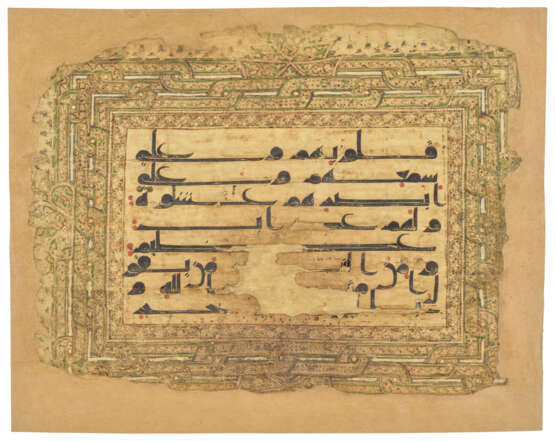 قلوبهم وعلى
سمعهم وعلى
ابصرهم غشوة
ولهم عذاب
عظيم
ومن النا من يقو
امنا بالله و